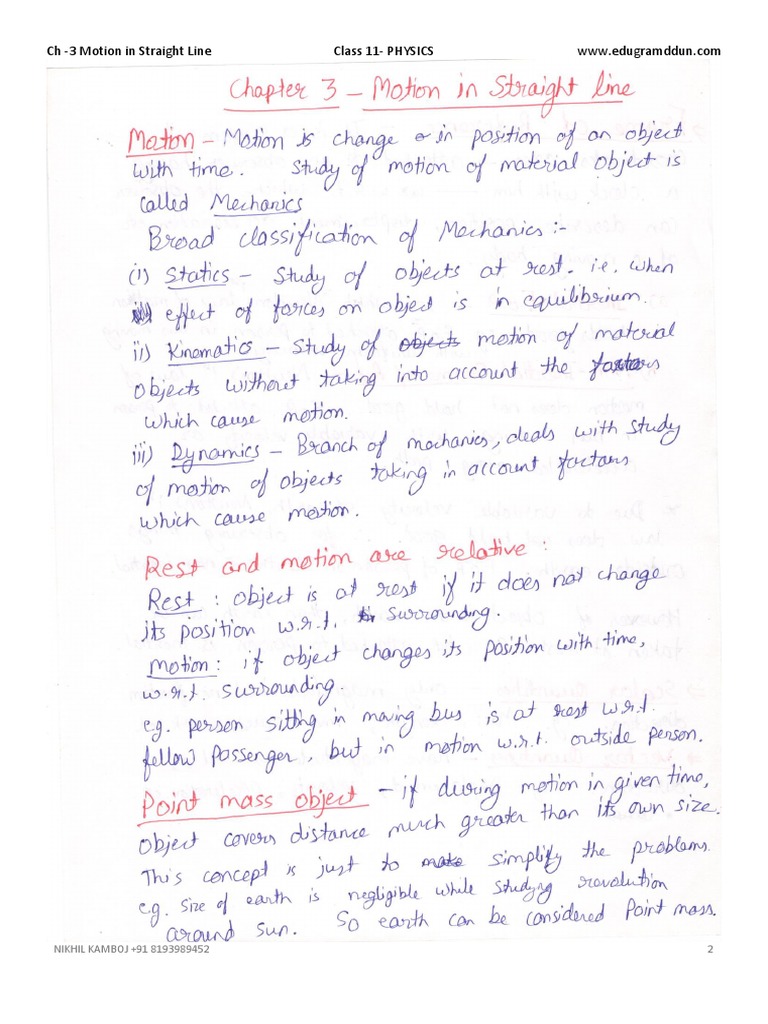 Ch -3 Motion in Straight Line Class 11- PHYSICS www.edugramddun.com
Chapter 3 – Motion in Straight line
Motion – Motion is change in position of an object
with time. Study of motion of material object is
called Mechanics
Broad classification of Mechanics :-
(i) Statics – Study of objects at rest. i.e. when
effect of forces on object is in equilibrium.
ii) Kinematics – Study of objects motion of material
objects without taking into account the factors
which cause motion.
iii) Dynamics – Branch of mechanics, deals with study
of motion of objects taking in account factors
which cause motion.
Rest and motion are relative :
Rest : object is at rest if it does not change
its position w.r.t. surrounding.
Motion : if object changes its position with time,
w.r.t. surrounding
e.g. person sitting in moving bus is at rest w.r.t.
fellow passenger, but in motion w.r.t. outside person.
Point mass object – if during motion in given time,
object covers distance much greater than its own size.
This concept is just to make simplify the problems.
e.g. size of earth is negligible while studying revolution
around sun. So earth can be considered Point mass.
NIKHIL KAMBOJ +91 8193989452 2